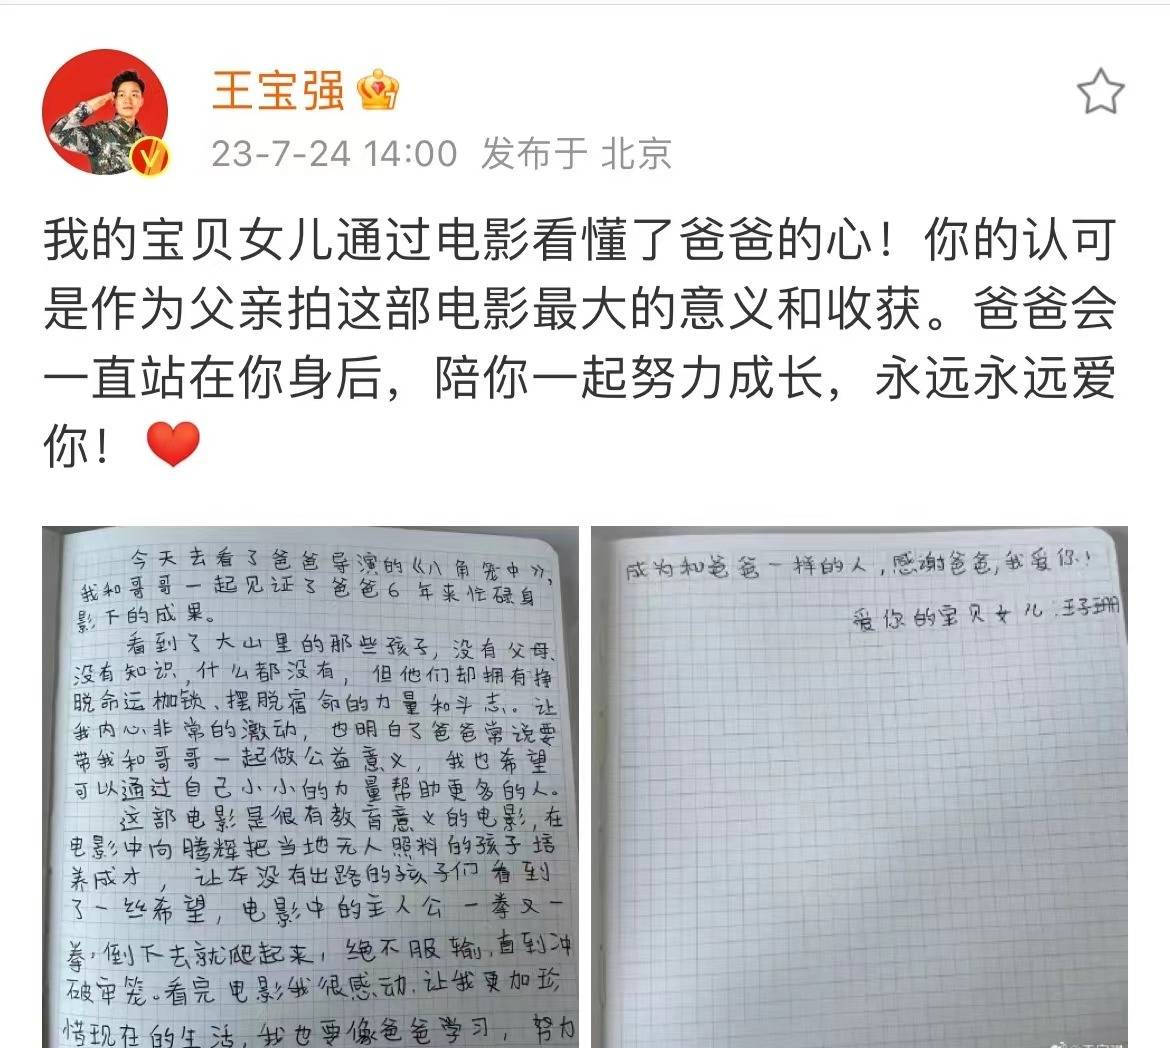 王宝强
23-7-24 14:00 发布于 北京
我的宝贝女儿通过电影看懂了爸爸的心！你的认可
是作为父亲拍这部电影最大的意义和收获。爸爸会
一直站在你身后，陪你一起努力成长，永远永远爱
你！
今天去看了爸爸导演的《八角笼中》，
我和哥哥一起见证了爸爸6年来忙碌身
影下的成果。
看到了大山里的那些孩子，没有父母、
没有知识，什么都没有，但他们却拥有挣
脱命运枷锁、摆脱宿命的力量和斗志。让
我内心非常的激动，也明白了爸爸常说要
带我和哥哥一起做公益意义，我也希望
可以通过自己小小的力量帮助更多的人。
这部电影是很有教育意义的电影，在
电影中向腾辉把当地无人照料的孩子培
养成才，让本没有出路的孩子们看到
了一丝希望，电影中的主人公一拳又一
拳，倒下去就爬起来，绝不服输，直到冲
破牢笼。看完电影我很感动，让我更加珍
惜现在的生活，我也要像爸爸学习，努力
成为和爸爸一样的人，感谢爸爸，我爱你！
爱你的宝贝女儿：王子珊